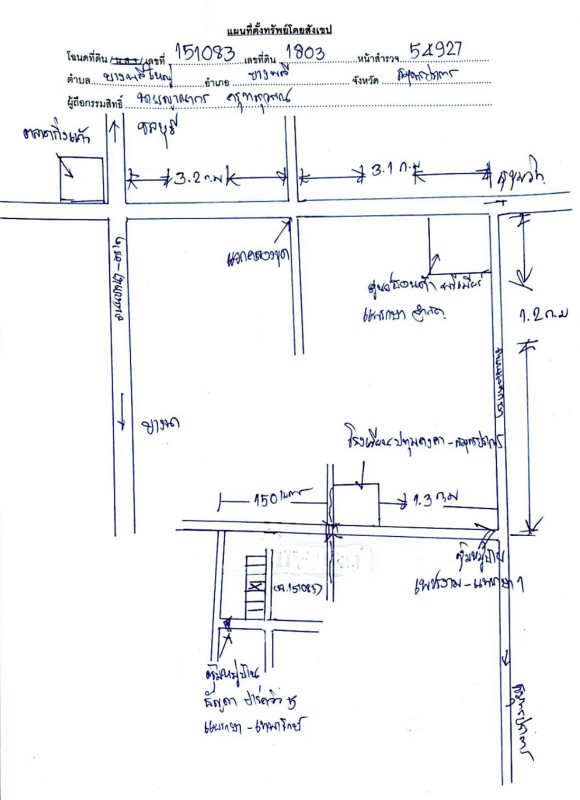 แผนที่ตั้งทรัพย์โดยสังเขป
โฉนดที่ดิน เลขที่ 151083 เลขที่ดิน 1803 หน้าสำรวจ 54927
ตำบล บางพลีใหญ่ อำเภอ บางพลี จังหวัด สมุทรปราการ
ผู้ถือกรรมสิทธิ์
ชลบุรี
ตลาดกิ่งแก้ว
3.2 กม
3.1 กม
แยกคลองขุด
ศูนย์ฮอนด้า พรีเมียร์
แพรกษา จำกัด
1.2 กม
บางนา
โรงเรียนปทุมคงคา-สมุทรปราการ
150 เมตร
1.3 กม
(ฉ.151083)
ซุ้มหมู่บ้าน
เพชรงาม-แพรกษา 1
ซุ้มหมู่บ้าน
ธัญดา ปาร์ควิว
แพรกษา-เทพารักษ์